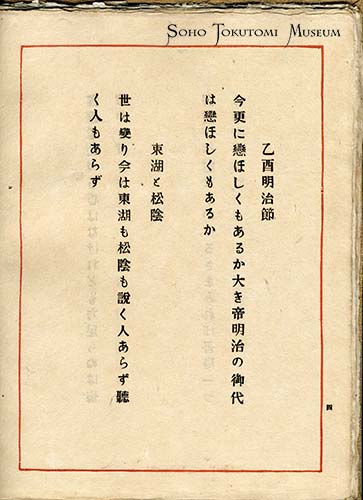 SOHO TOKUTOMI MUSEUM
乙酉明治節
今更に戀ほしくもあるか大き帝明治の御代
は戀ほしくもあるか
東湖と松陰
世は變り今は東湖も松陰も說く人あらず聽
く人もあらず
四